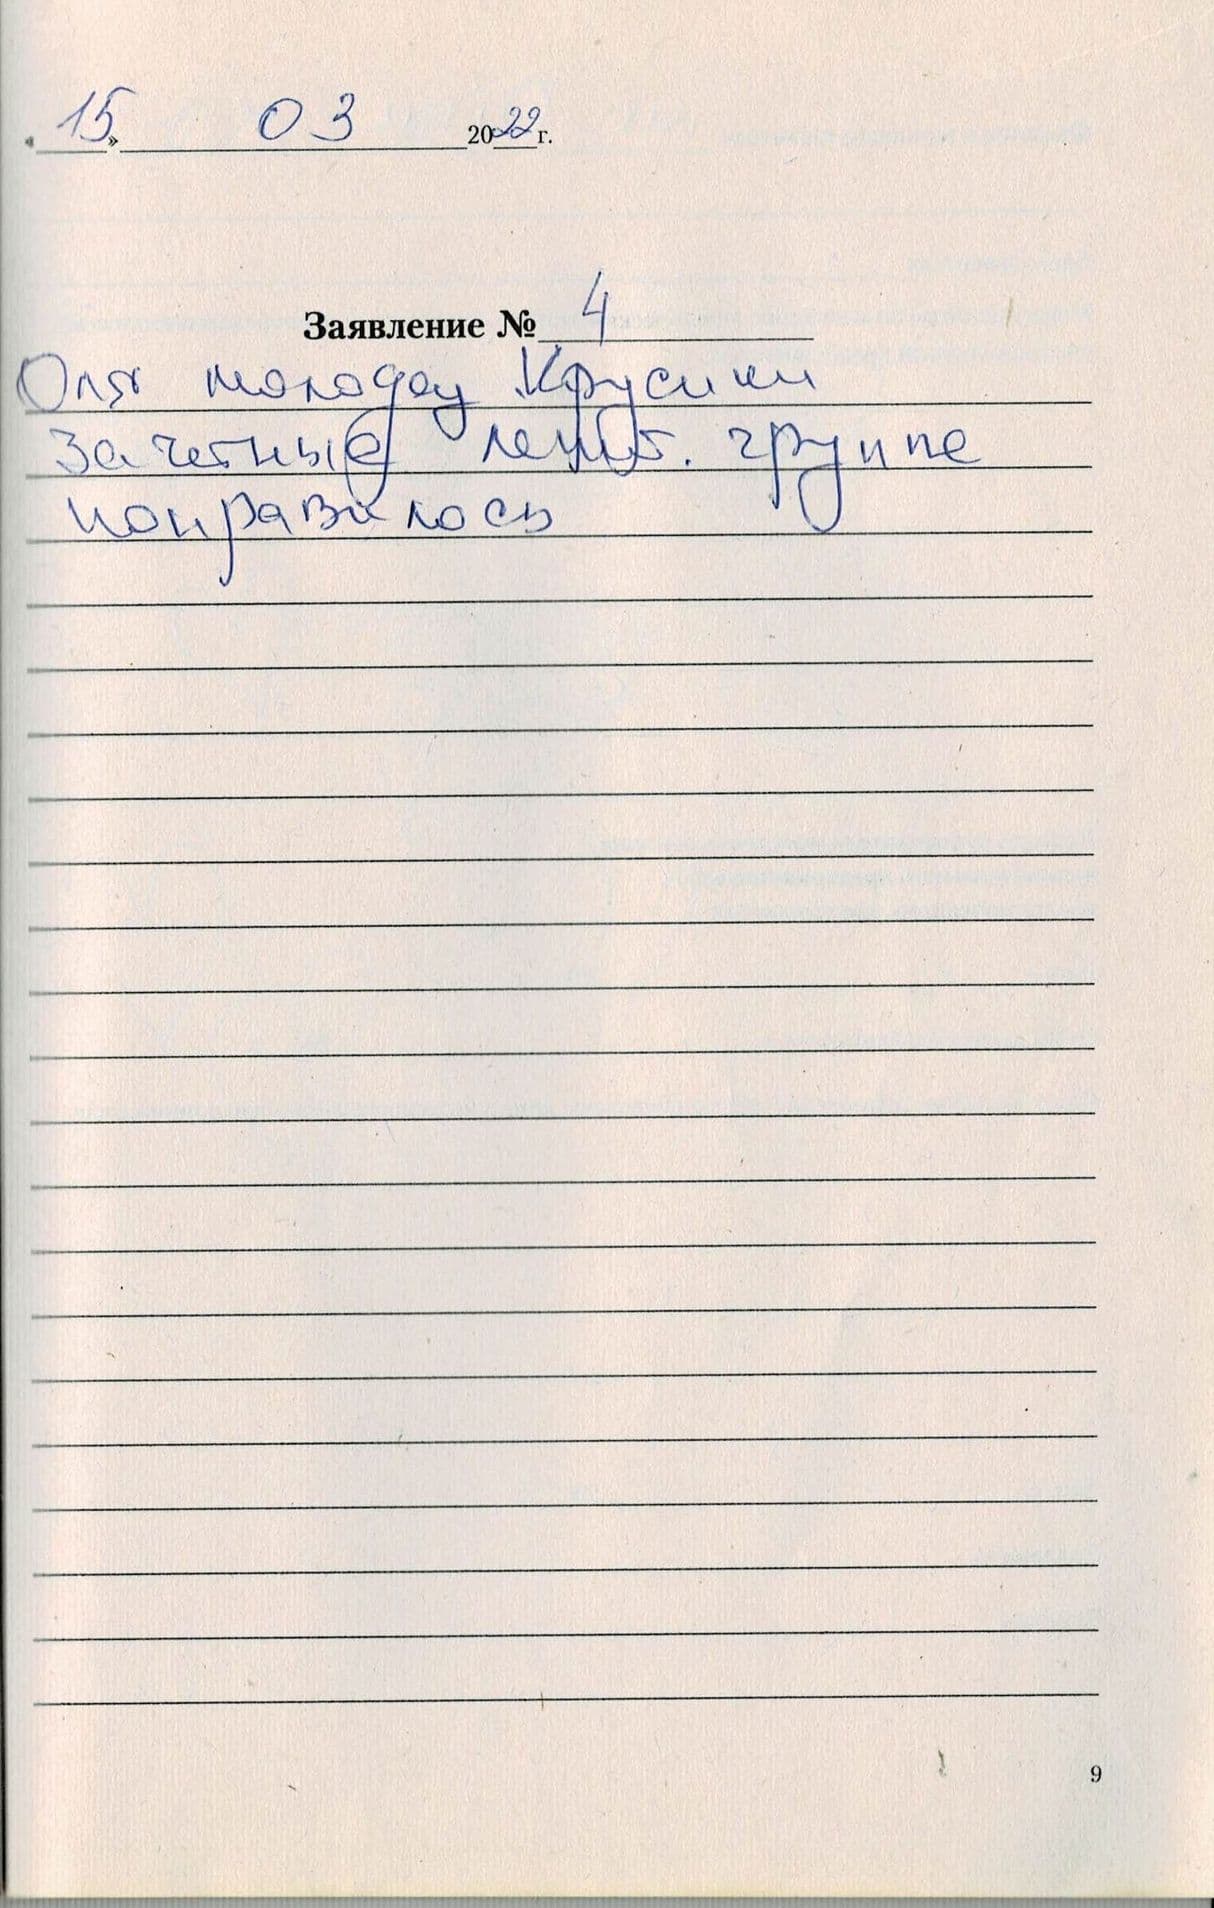 «15» 03 2022 г.
Заявление № 4
Оля молодец Трусики
зачетные группе
понравилось
9